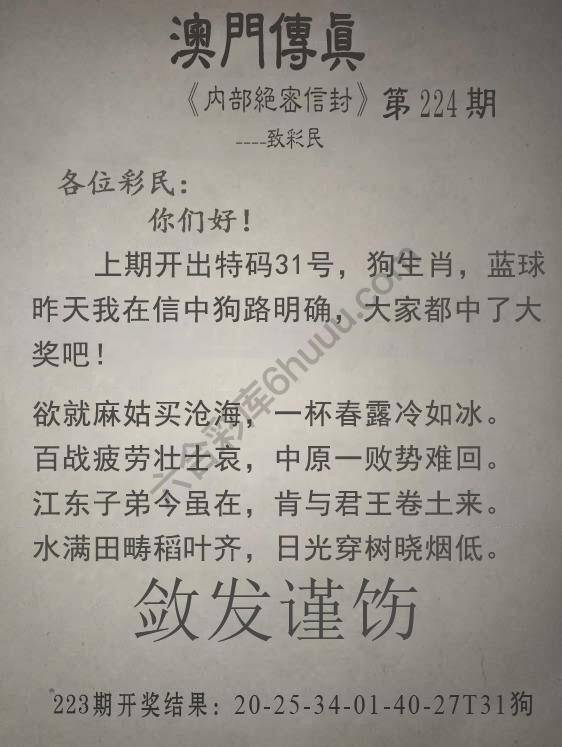 澳門傳眞
《内部絕密信封》第224期
----致彩民
各位彩民：
你们好！
上期开出特码31号，狗生肖，蓝球
昨天我在信中狗路明确，大家都中了大
奖吧！
欲就麻姑买沧海，一杯春露冷如冰。
百战疲劳壮士哀，中原一败势难回。
江东子弟今虽在，肯与君王卷土来。
水满田畴稻叶齐，日光穿树晓烟低。
敛发谨饬
223期开奖结果：20-25-34-01-40-27T31狗
六合彩库6huuu.com